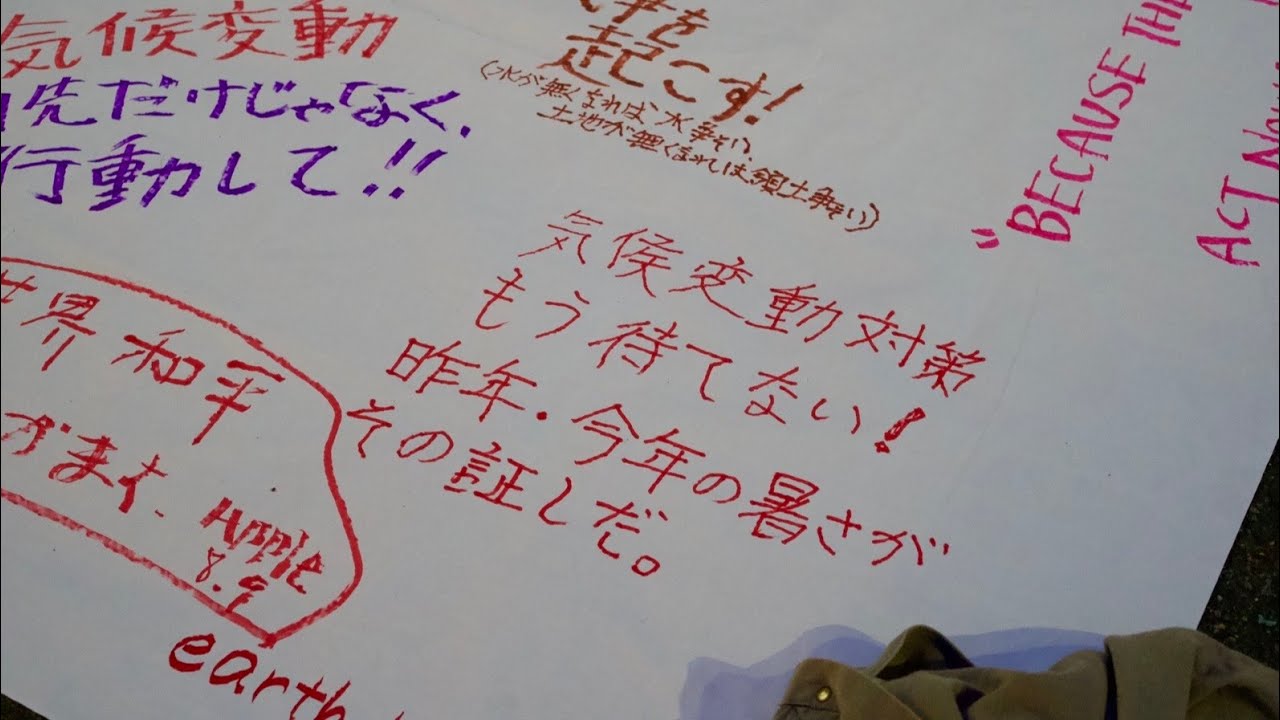 気候変動
口先だけじゃなく、
行動して!!
争を
起こす!
(水が無くなれば、水争い、
土地が無くなれば領土争い)
"BECAUSE
ACT NOW
気候変動対策
もう待てない!
昨年・今年の暑さが
その証しだ。
世界和平
Apple
8.9
earth